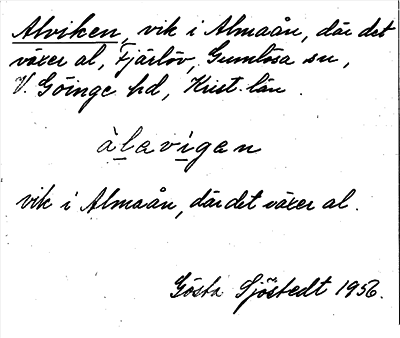 Alviken, vik i Almaån, där det
växer al, Fjärlöv, Gumlösa sn,
V. Göinge hd, Krist. län.
àlavigen
vik i Almaån, där det växer al.
Gösta Sjöstedt 1956.